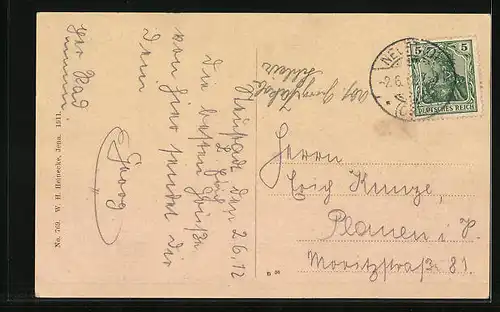 Neustadt den 2.6.12
die besten Grüße
von hier sendet dir
Dein
Georg
No. 769. W. H. Heinecke, Jena. 1911.
Abs.
NEU
-2.6.
5
5
DEUTSCHES REICH
Herrn
Erich Kunze,
Plauen i. V.
Moritzstraße 81.